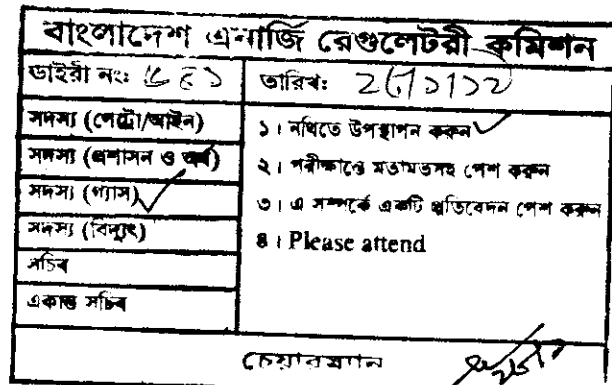 বাংলাদেশ এনার্জি রেগুলেটরী কমিশন
ডাইরী নং: ৬৪১
তারিখ:
সদস্য (পেট্রো/আইন)
সদস্য (প্রশাসন ও অর্থ)
সদস্য (গ্যাস)
সদস্য (বিদ্যুৎ)
সচিব
একান্ত সচিব
১। নথিতে উপস্থাপন করুন
২। পরীক্ষান্তে মতামতসহ পেশ করুন
৩। এ সম্পর্কে একটি প্রতিবেদন পেশ করুন
৪। Please attend
চেয়ারম্যান